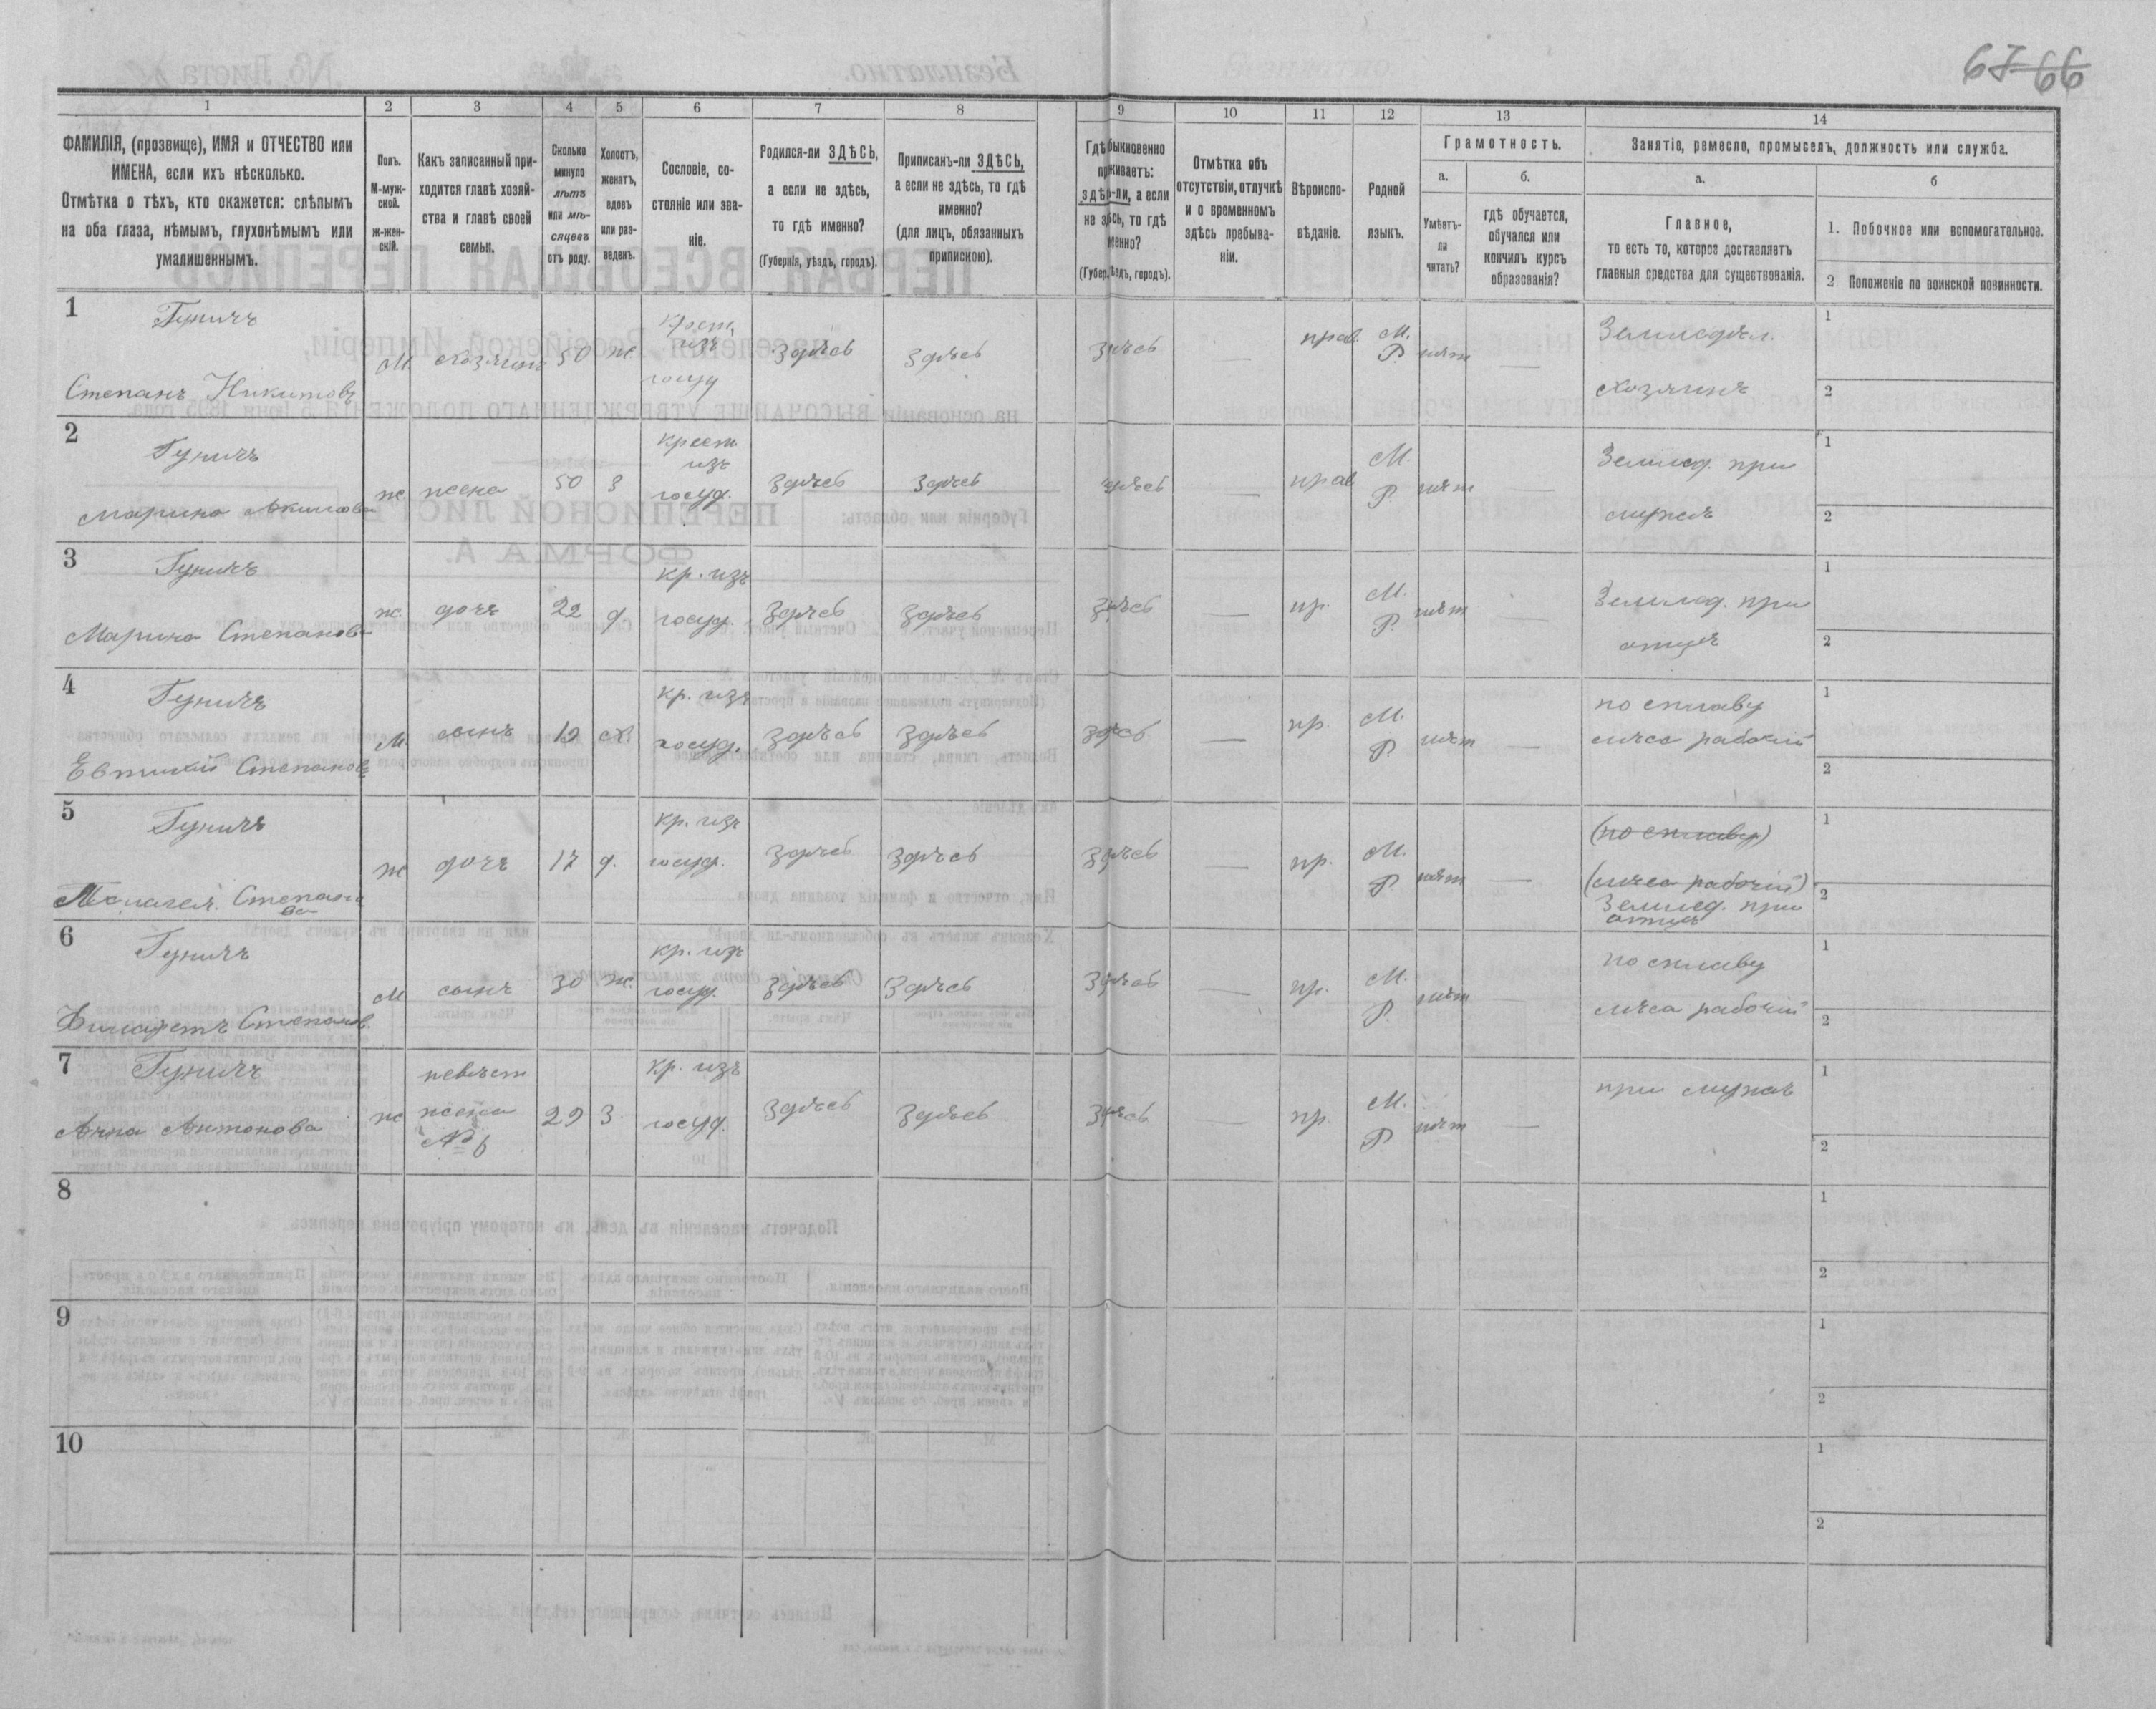 67 66
1 2 3 4 5 6 7 8 9 10 11 12 13 14
ФАМИЛІЯ, (прозвище), ИМЯ и ОТЧЕСТВО или
ИМЕНА, если ихъ нѣсколько.
Отмѣтка о тѣхъ, кто окажется: слѣпымъ
на оба глаза, нѣмымъ, глухонѣмымъ или
умалишеннымъ.
Полъ.
М-муж-
ской.
ж-жен-
скій.
Какъ записанный при-
ходится главѣ хозяй-
ства и главѣ своей
семьи.
Сколько
минуло
лѣтъ
или мѣ-
сяцевъ
отъ роду.
Холостъ,
женатъ,
вдовъ
или раз-
веденъ.
Сословіе, со-
стояніе или зва-
ніе.
Родился-ли ЗДѢСЬ,
а если не здѣсь,
то гдѣ именно?
(Губернія, уѣздъ, городъ).
Приписанъ-ли ЗДѢСЬ,
а если не здѣсь, то гдѣ
именно?
(для лицъ, обязанныхъ
припискою).
Гдѣ
ЗДѢ ли, а если
не здѣсь, то гдѣ
(Губер. городъ).
Отмѣтка объ
отсутствіи, отлучкѣ
и о временномъ
здѣсь пребыва-
ніи.
Вѣроиспо-
вѣданіе.
Родной
языкъ.
Грамотность.
а.
Умѣетъ-
ли
читать?
б.
гдѣ обучается,
обучался или
кончилъ курсъ
образованія?
Занятіе, ремесло, промыселъ, должность или служба.
а.
Главное,
то есть то, которое доставляетъ
главныя средства для существованія.
б
1. Побочное или вспомогательное.
2 Положеніе по воинской повинности.
1 Гуничъ
Степанъ Никитовъ
М хозяинъ 50 ж
Крест.
изъ
госуд
здѣсь здѣсь здѣсь — прав. М.
Р. нѣтъ —
Земледѣл.
хозяинъ
1
2
2 Гуничъ
Марина Акимова
ж жена 50 з
крест.
изъ
госуд.
здѣсь здѣсь здѣсь — прав М.
Р. нѣт —
Земледѣл. при
мужѣ
1
2
3 Гуничъ
Марина Степанова
ж. дочь 22 д.
кр. изъ
госуд.
здѣсь здѣсь здѣсь — пр. М.
Р. нѣт —
Землед. при
отцѣ
1
2
4 Гуничъ
Евтихий Степановъ
М. сынъ 19 сх.
кр. изъ
госуд.
здѣсь здѣсь здѣсь — пр. М.
Р. нѣт —
по сплаву
лѣса рабочій
1
2
5 Гуничъ
Степано
ва
ж дочь 17 д.
кр. изъ
госуд.
здѣсь здѣсь здѣсь — пр. М.
Р нѣт —
(по сплаву)
(лѣса рабочій)
Землед. при
отцѣ
1
2
6 Гуничъ
Филаретъ Степанов.
М сынъ 30 ж.
кр. изъ
госуд.
здѣсь здѣсь здѣсь — пр. М.
Р. нѣт
по сплаву
лѣса рабочій
1
2
7 Гуничъ
Анна Антонова
ж
невѣст
жена
№ 6
29 з.
кр. изъ
госуд.
здѣсь здѣсь здѣсь — пр. М.
Р. нѣт —
при мужѣ
1
2
8
1
2
9
1
2
10
1
2